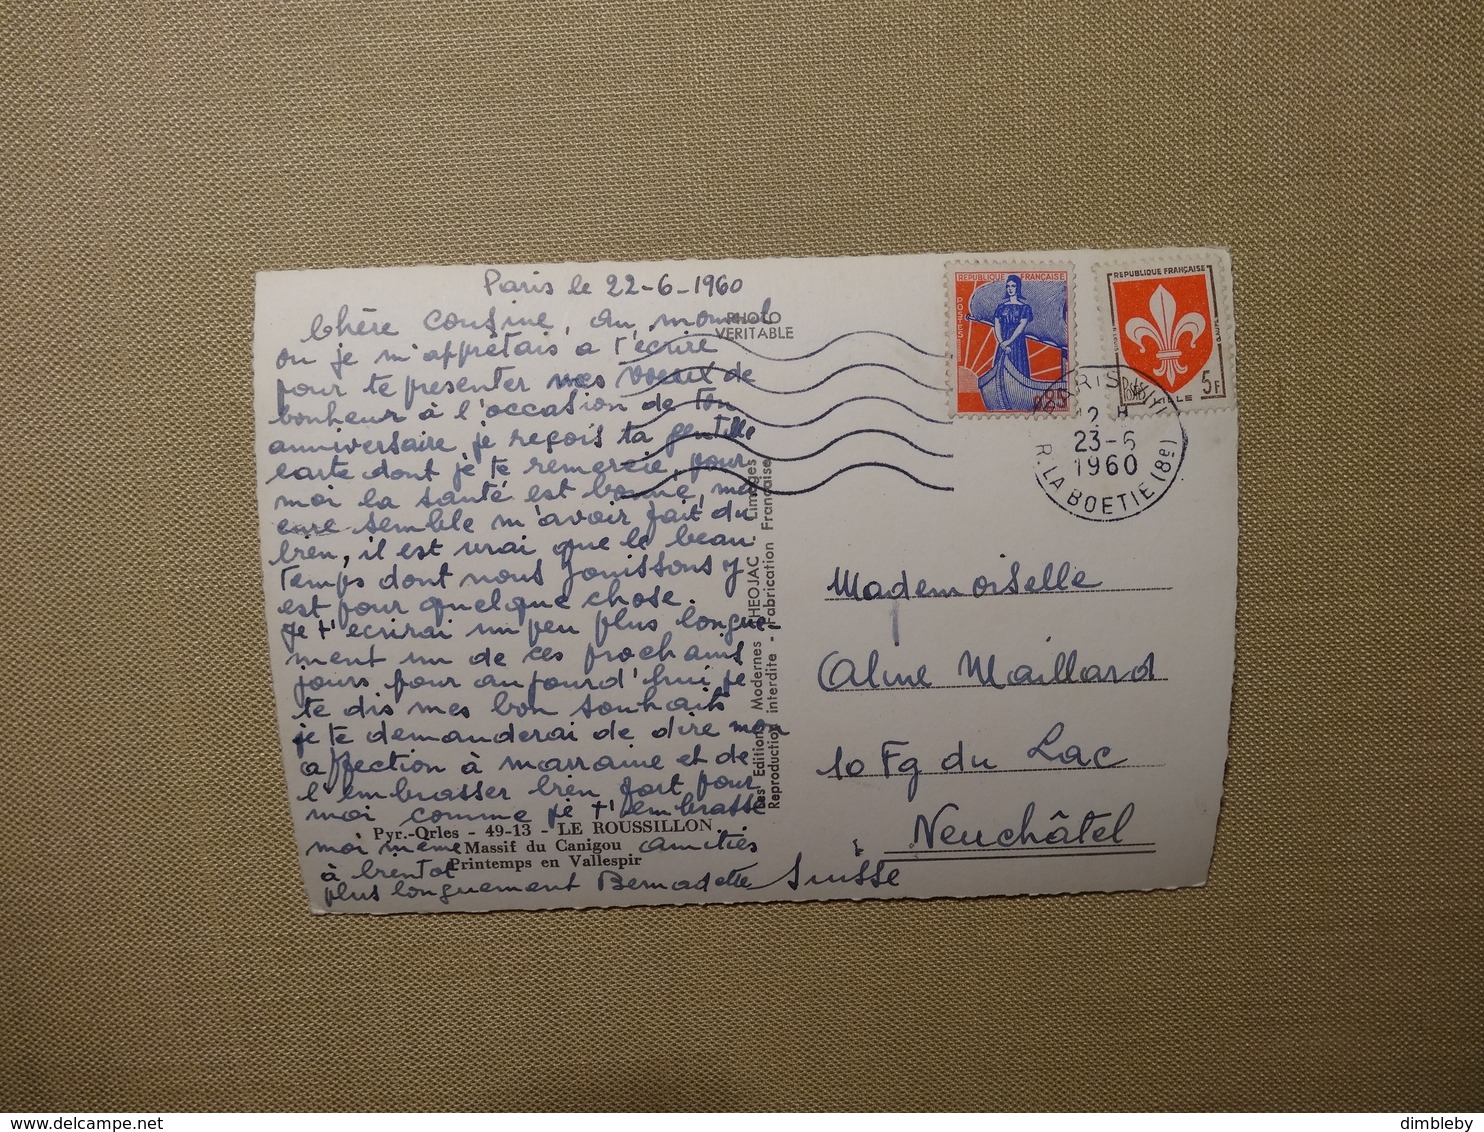 Paris le 22-6-1960
Chère cousine, au moment
ou je m'apprêtais a t'écrire
pour te presenter mes voeux de
bonheur à l'occasion de ton
anniversaire, je reçois ta gentille
carte dont je te remercie, pour
moi la santé est bonne, ma
cure semble m'avoir fait du
bien, il est vrai que le beau
temps dont nous jouissons y
est pour quelque chose.
Je t'ecrirai un peu plus longue-
ment un de ces prochains
jours pour aujourd'hui je
te dis mes bon souhaits
je te demanderai de dire mon
affection à marraine et de
l'embrasser bien fort pour
moi comme je t'embrasse
moi même amitiés
à bientot
plus longuement Bernadette
Pyr.-Orles - 49-13 - LE ROUSSILLON
Massif du Canigou
Printemps en Vallespir
PHOTO
VERITABLE
Les Editions Modernes THEOJAC Limoges
Reproduction interdite - Fabrication Française
REPUBLIQUE FRANÇAISE
POSTES
REPUBLIQUE FRANÇAISE
5F
LILLE
PARIS
12 H
23-6
1960
R. LA BOETIE (8e)
Mademoiselle
Aline Maillard
10 Fg du Lac
Neuchâtel
Suisse
delcampe.net
dimbleby